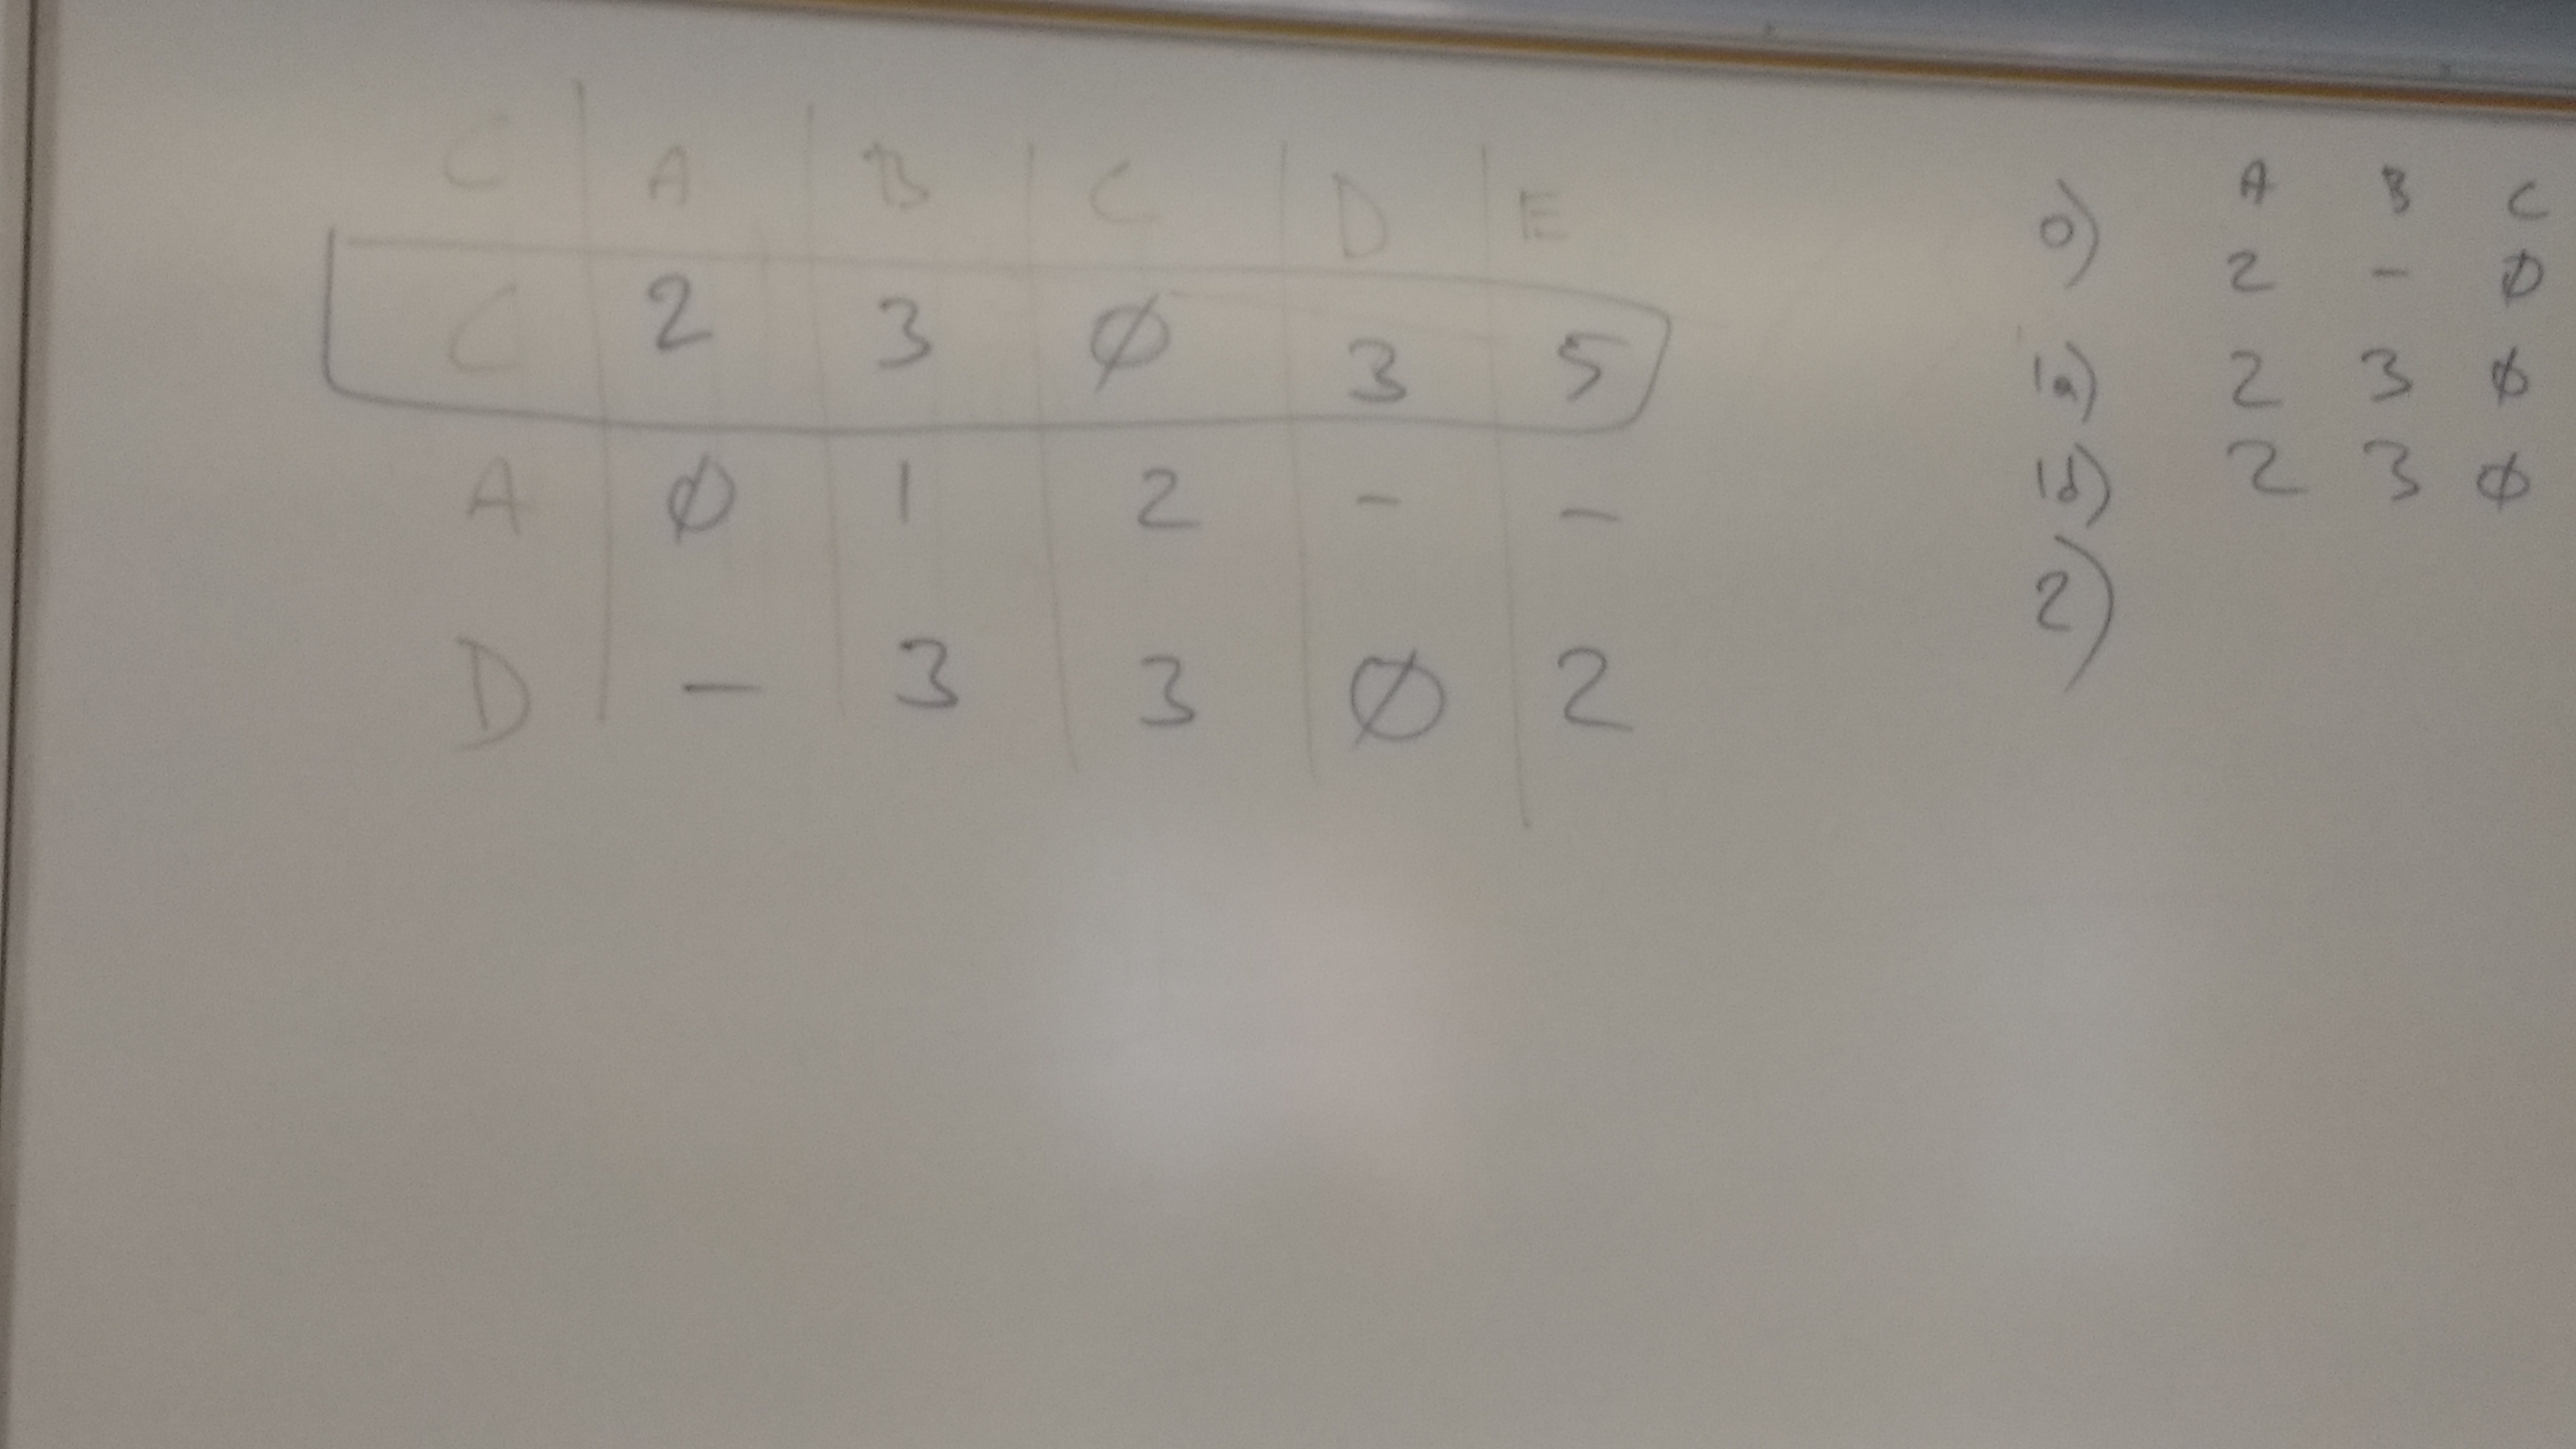 C A B C D E
C 2 3 Ø 3 5
A Ø 1 2 - -
D - 3 3 Ø 2
0) A B C
2 - Ø
1a) 2 3 Ø
1d) 2 3 Ø
2)